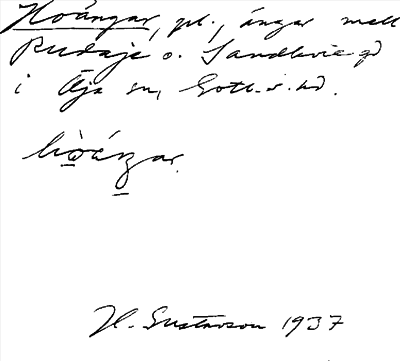 Hoángar, pl., ángar mell
Rudaje o. Sandkvie gd
i Öja sn, Gotl. s. hd.
hòángar.
H. Gustavson 1937